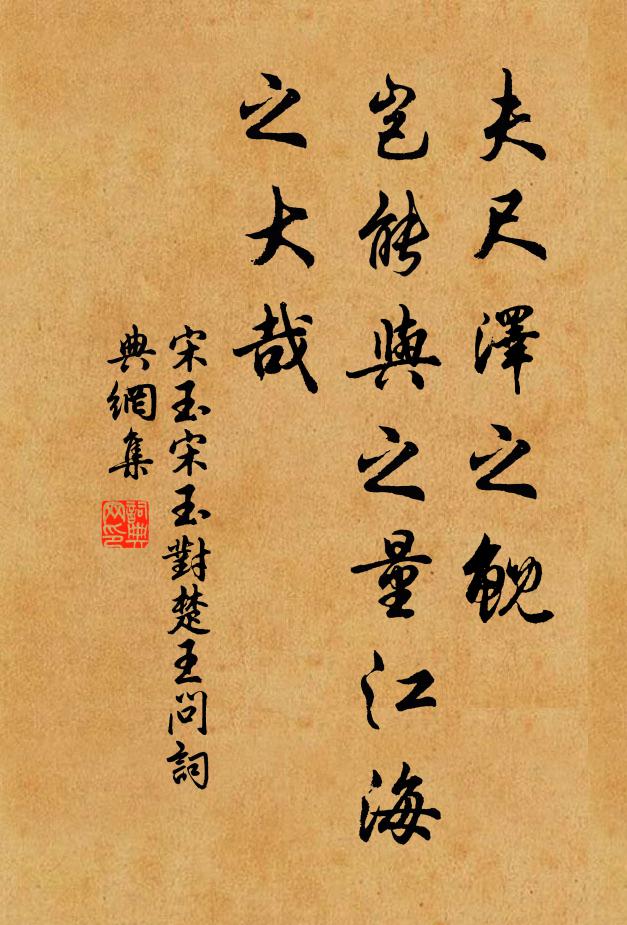 夫尺澤之鲵
豈能與之量江海
之大哉
宋玉宋玉對楚王問詞
典網集
詞典
网印